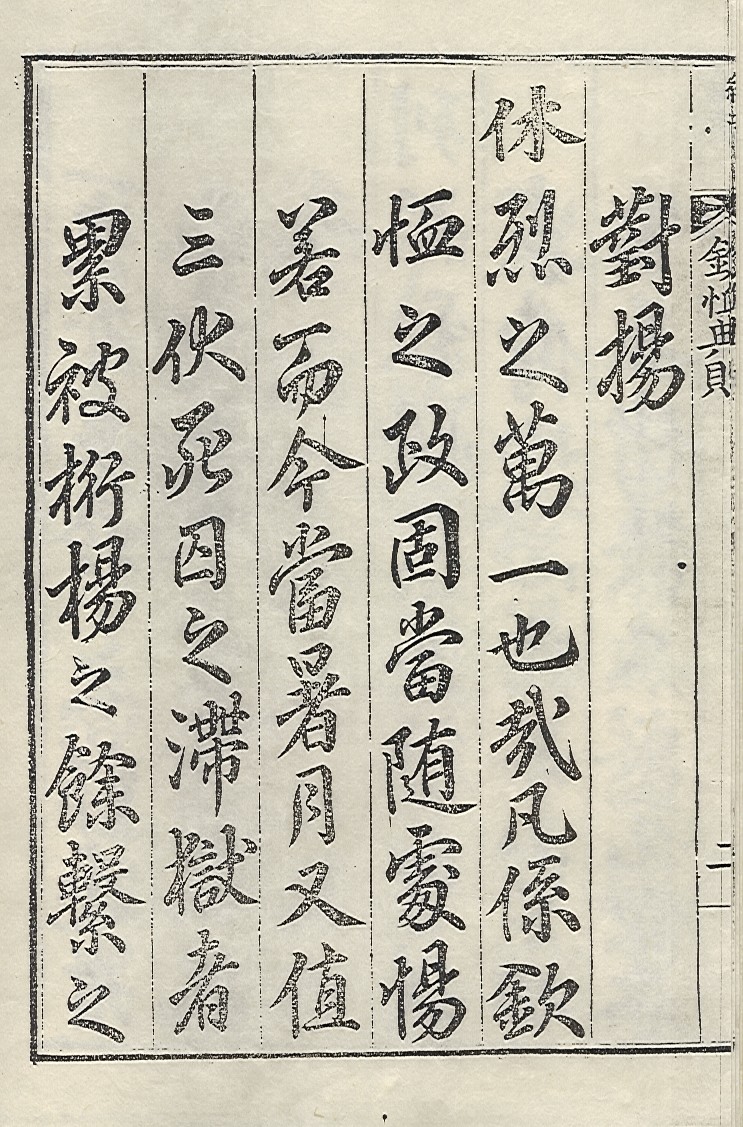 欽恤典則
二
對揚
休烈之萬一也哉凡係欽
恤之政固當随處惕
若而今當暑月又值
三伏死囚之滯獄者
累被桁楊之餘繫之